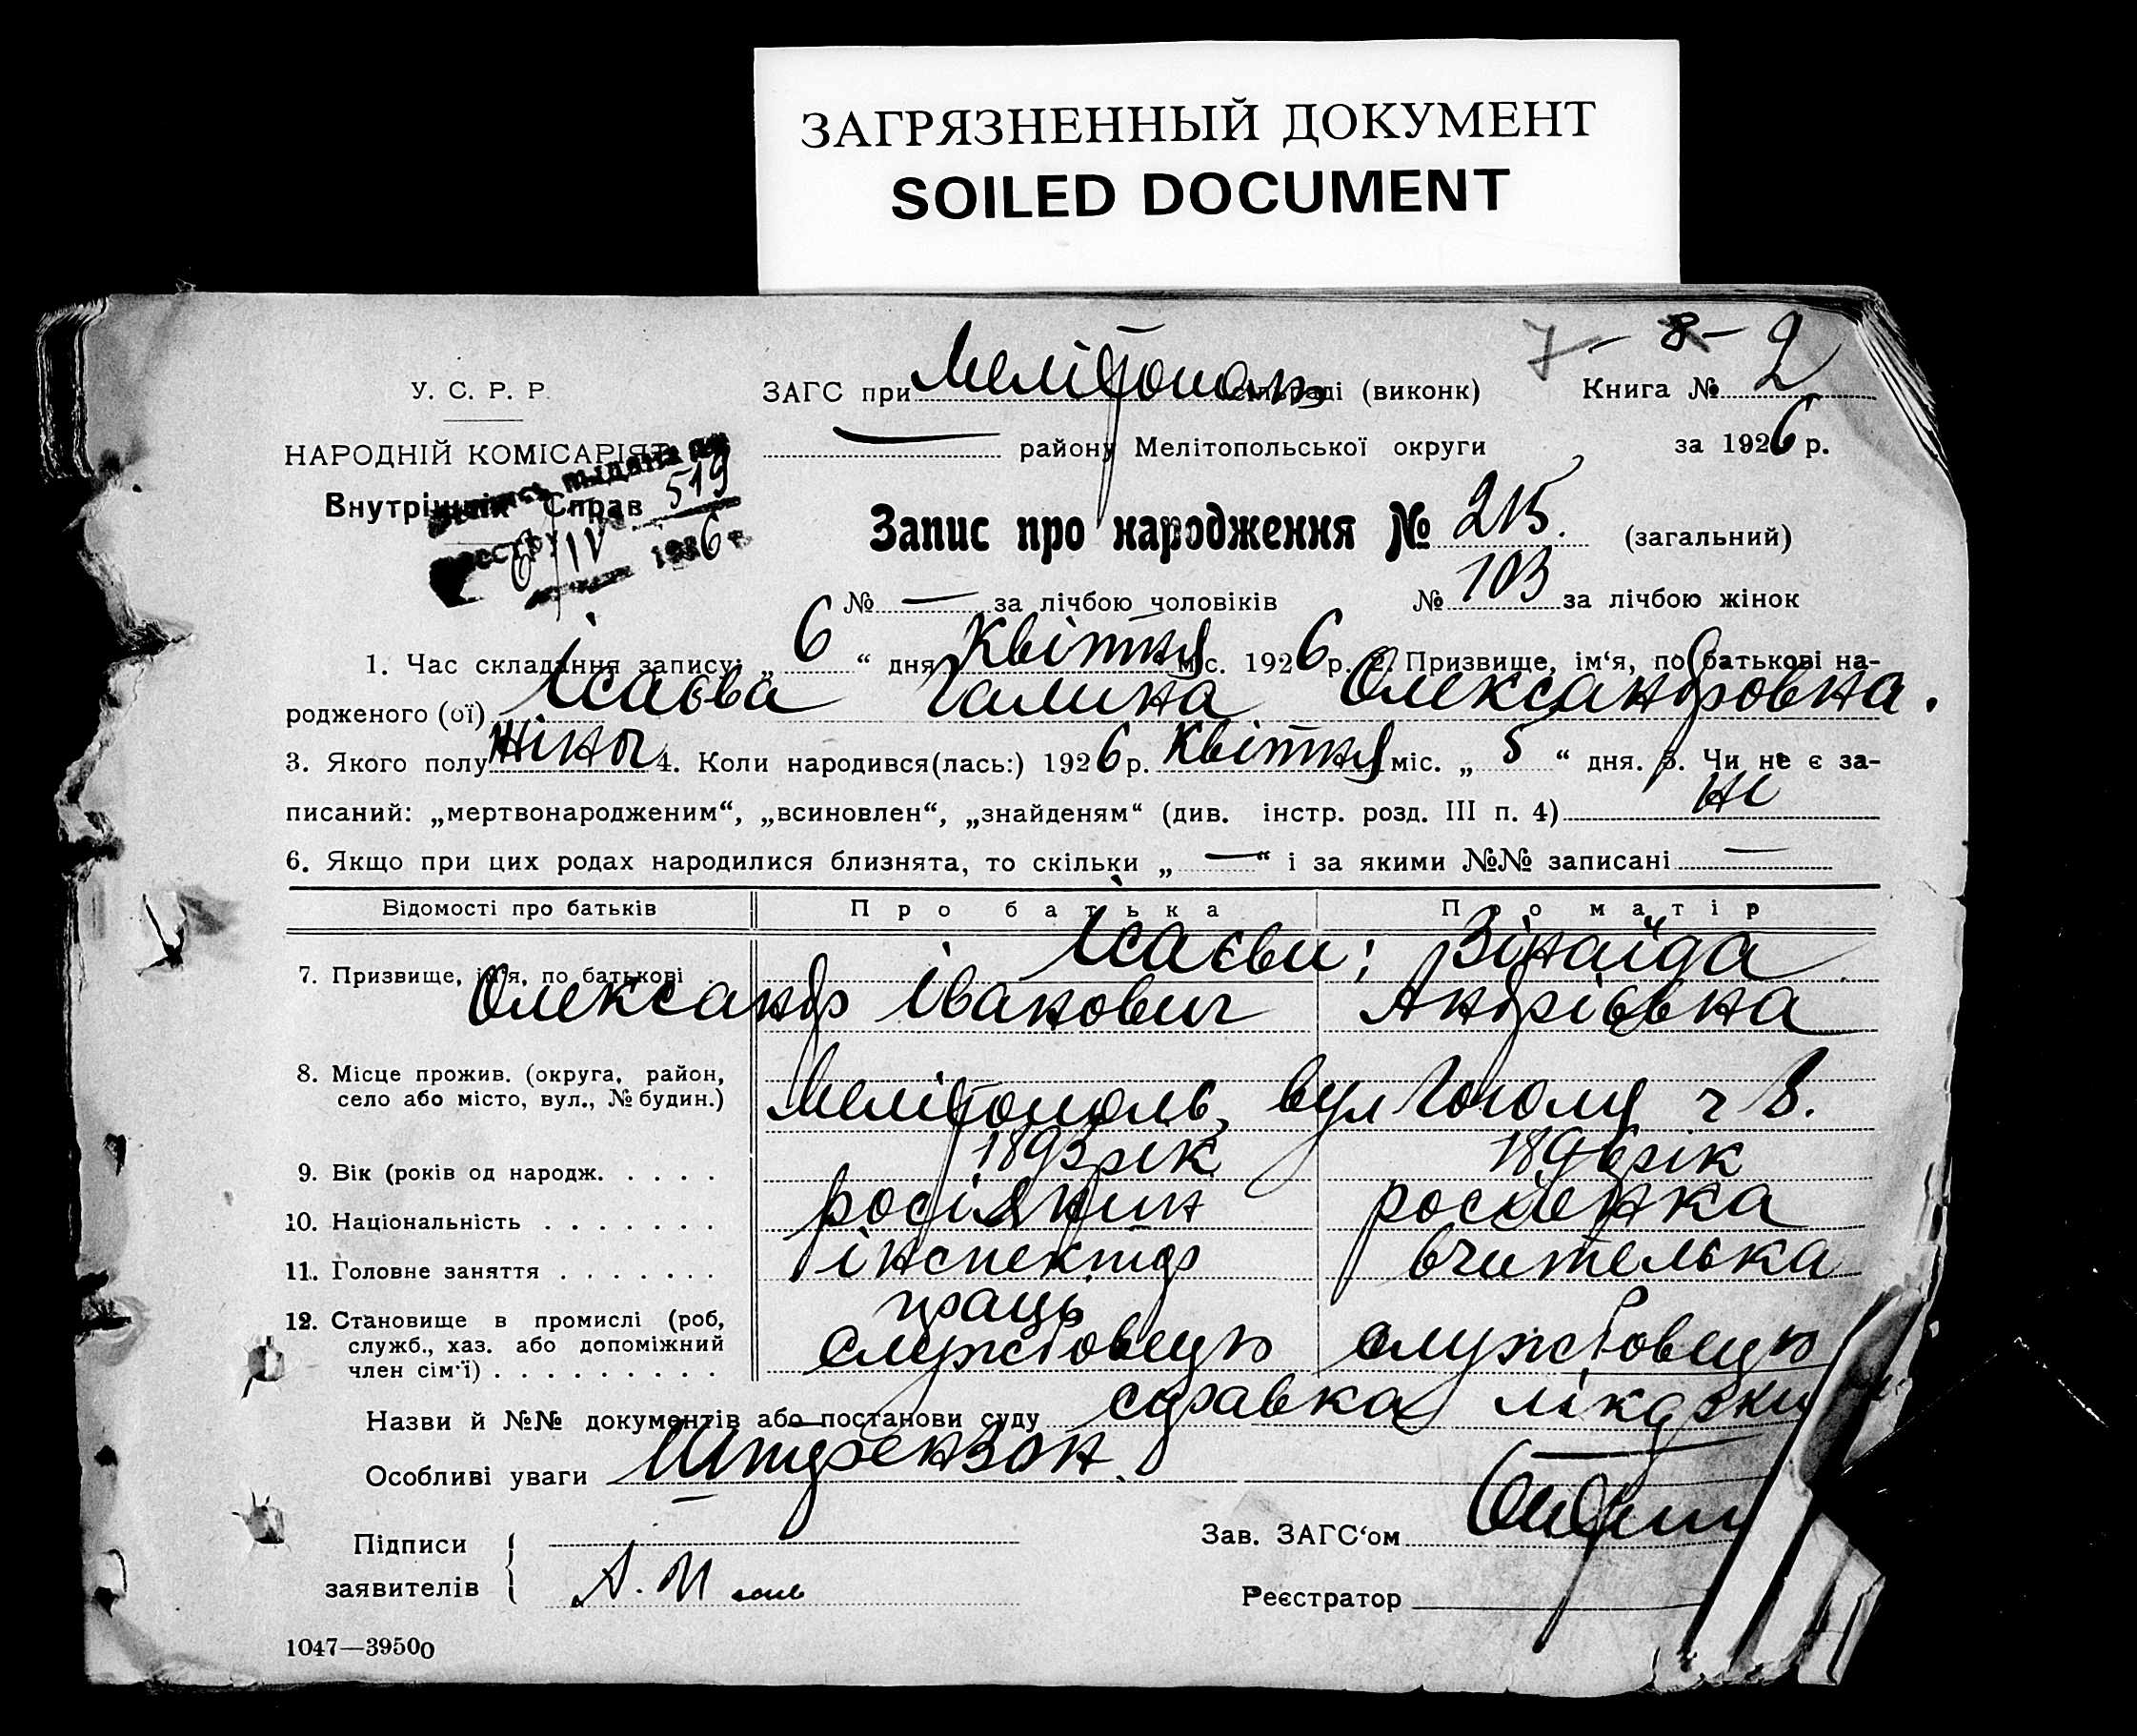 ЗАГРЯЗНЕННЫЙ ДОКУМЕНТ
SOILED DOCUMENT
7 - 8 -
У. С. Р. Р. ЗАГС при Мелітополь сільраді (виконк) Книга № 2
НАРОДНІЙ КОМІСАРІЯТ — району Мелітопольської округи за 1926 р.
Внутрішніх Справ 519
6/IV 1926 г.
Запис про народження № 215. (загальний)
№ — за лічбою чоловіків № 103 за лічбою жінок
1. Час складання запису: „ 6 “ дня Квітня міс. 1926 р. 2. Призвище, ім‘я, по батькові на-
родженого (ої) Ісаєва Галина Олександровна.
3. Якого полу жіноч 4. Коли народився(лась:) 1926 р. Квітня міс. „ 5 “ дня. 5. Чи не є за-
писаний: „мертвонародженим“, „всиновлен“, „знайденям“ (див. інстр. розд. III п. 4) не
6. Якщо при цих родах народилися близнята, то скільки „ — “ і за якими №№ записані —
Відомості про батьків Про батька Про матір
Ісаєви; Зінаїда
7. Призвище, ім‘я, по батькові
Олександр Іванович Андріївна
8. Місце прожив. (округа, район,
село або місто, вул., № будин.) Мелітополь, вул Гоголя ч 8.
9. Вік (років од народж. . . . . 1893 рік 1896 рік
10. Національність . . . . . . . росіянин росіянка
11. Головне заняття . . . . . . . інспектор вчителька
праць
12. Становище в промислі (роб,
служб., хаз. або допоміжний
член сім‘ї) . . . . . . . . . службовець службовець
Назви й №№ документів або постанови суду справка лікарки
Особливі уваги Штерензон
Підписи
заявителів А. И
Зав. ЗАГС‘ом
Реєстратор
1047—39500